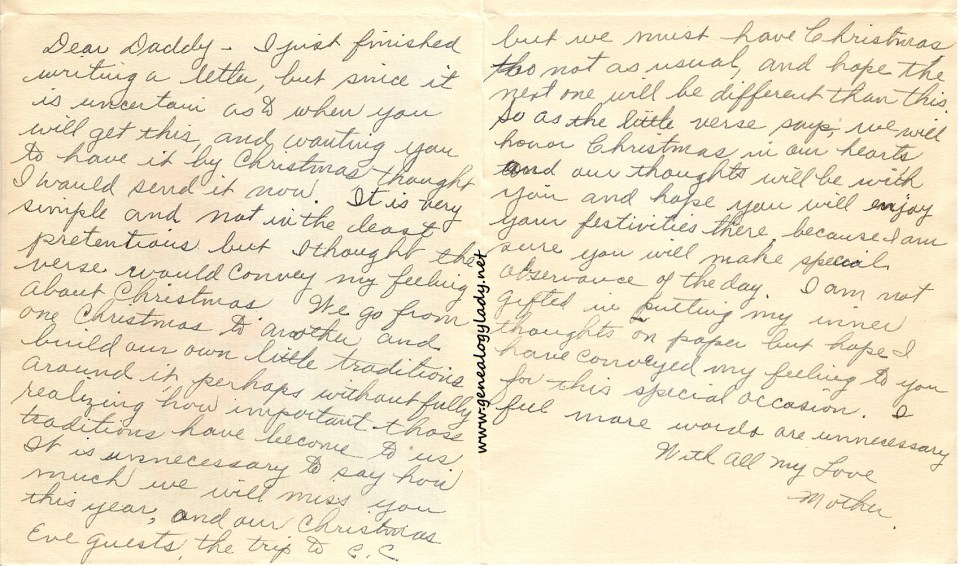 Dear Daddy - I just finished
writing a letter, but since it
is uncertain as to when you
will get this, and wanting you
to have it by Christmas thought
I would send it now. It is very
simple and not in the least
pretentious but I thought the
verse would convey my feeling
about Christmas. We go from
one Christmas to another and
build our own little traditions
around it, perhaps without fully
realizing how important those
traditions have become to us.
It is unnecessary to say how
much we will miss you
this year, and our Christmas
Eve guests, the trip to C.C.
but we must have Christmas
tho not as usual, and hope the
next one will be different than this
So as the little verse says, we will
honor Christmas in our hearts
and our thoughts will be with
you and hope you will enjoy
your festivities there, because I am
sure you will make special
observance of the day. I am not
gifted in putting my inner
thoughts on paper but hope I
have conveyed my feeling to you
for this special occasion. I
feel more words are unnecessary
With all my Love
Mother.
www.genealogylady.net